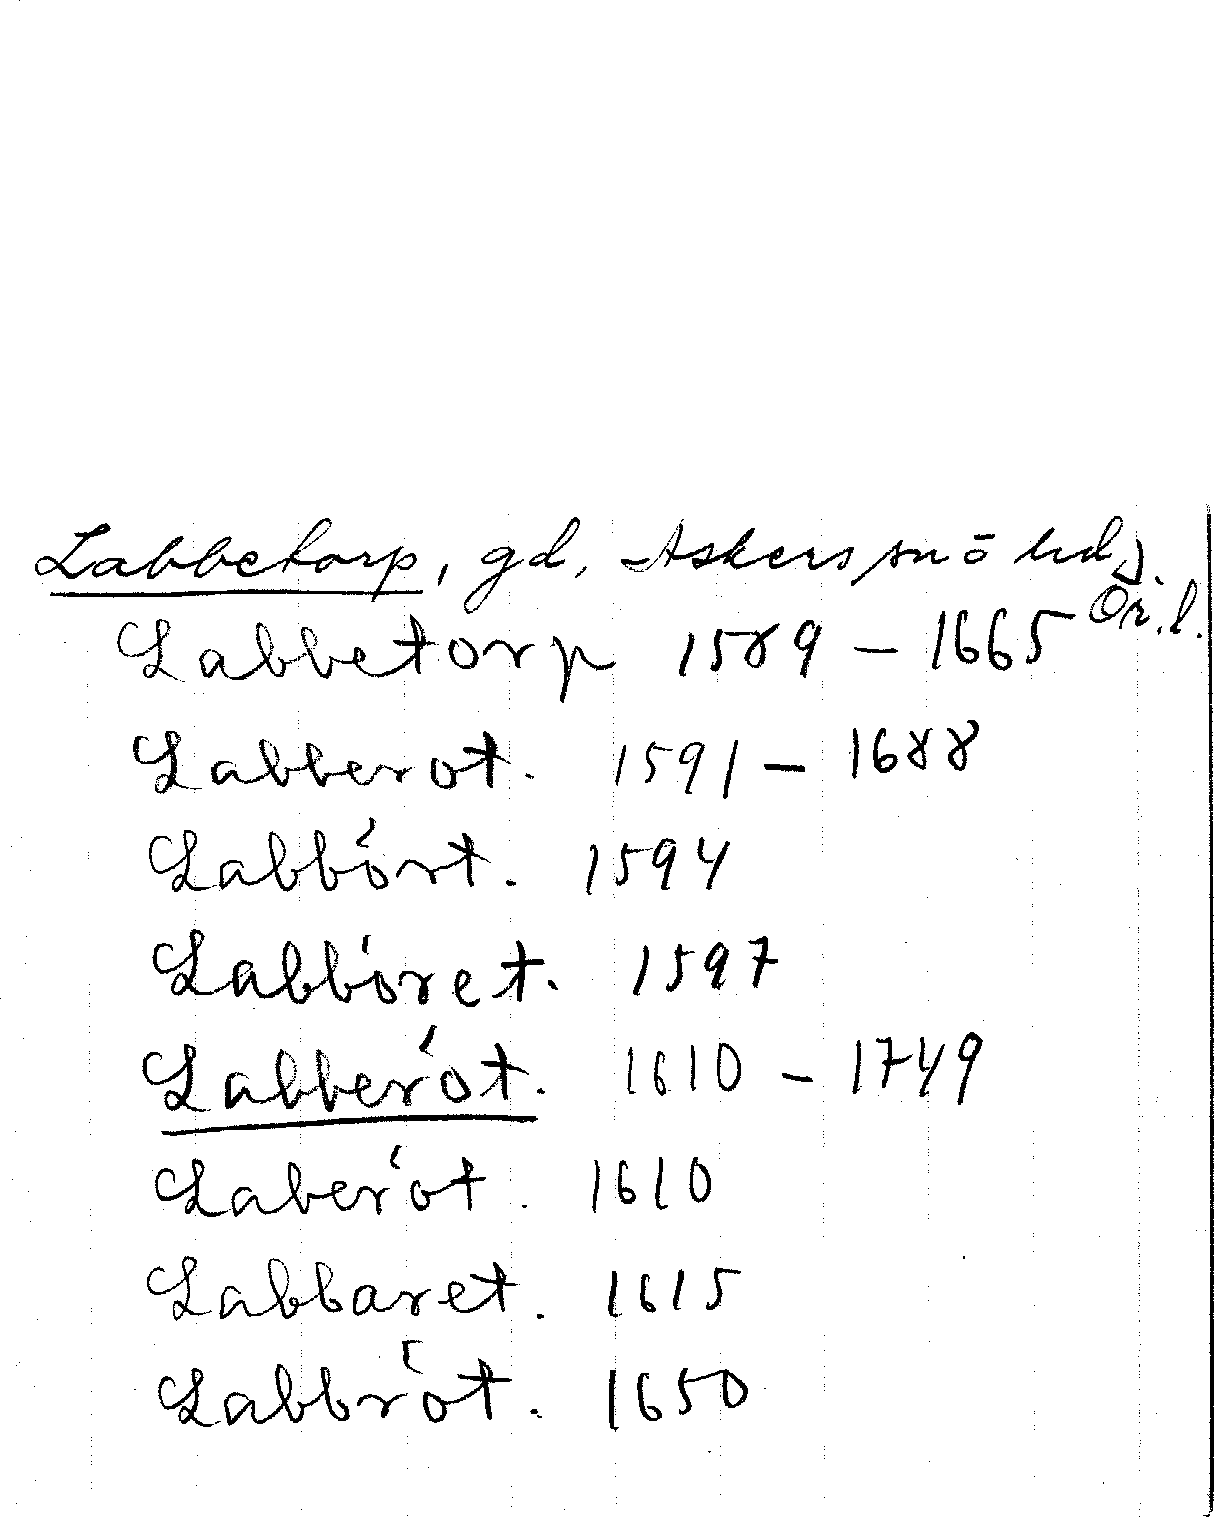 Labbetorp, gd, Askers sn ō hd,
Ör. l.
Labbetorp 1589 – 1665
Labberot. 1591 – 1688
Labbórt. 1594
Labbóret. 1597
Labberót. 1610 – 1749
Laberót. 1610
Labbaret. 1615
Labbrót. 1650